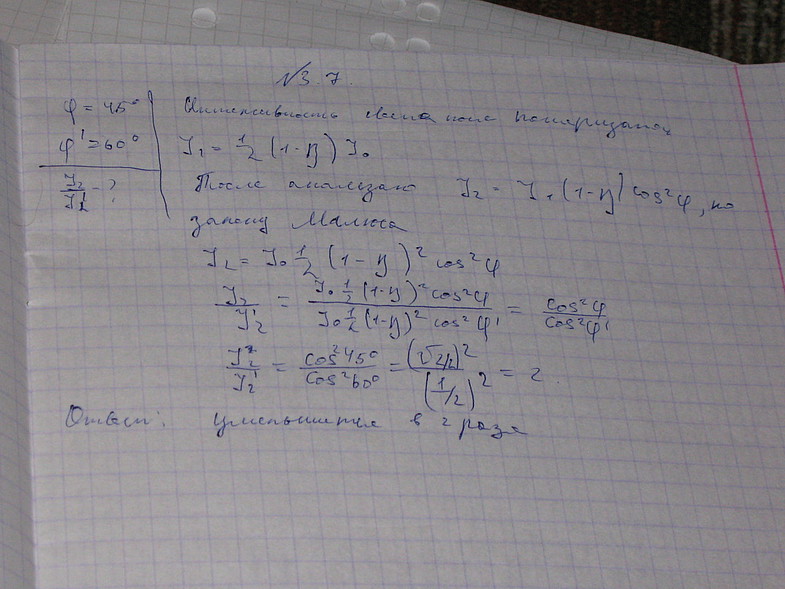 №3.7.
φ = 45°
φ' = 60°
J₂/J₂' - ?
Интенсивность света после поляризатора
J₁ = 1/2 (1-η) J₀
После анализато J₂ = J₁ (1-η) cos²φ, по
закону Малюса
J₂ = J₀ 1/2 (1-η)² cos²φ
J₂/J₂' = J₀ 1/2 (1-η)² cos²φ / J₀ 1/2 (1-η)² cos²φ' = cos²φ / cos²φ'
J₂/J₂' = cos²45° / cos²60° = (√2/2)² / (1/2)² = 2.
Ответ: уменьшится в 2 раза